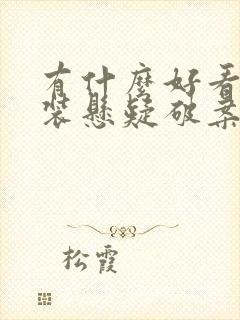 有什麼好看
裝懸疑破案
松霞